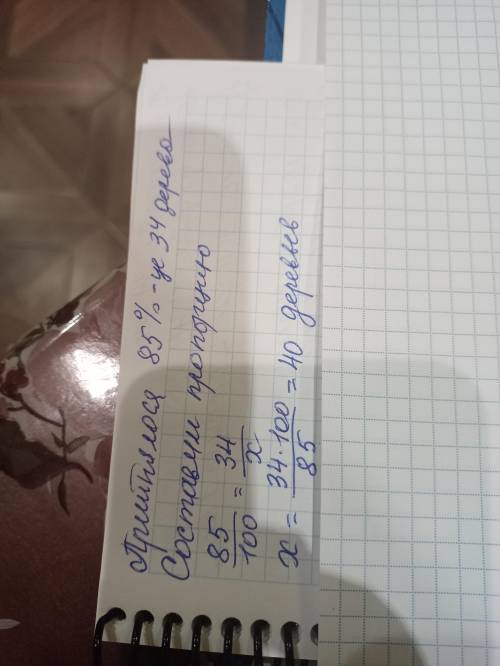 Принялося 85% - це 34 дерева
Составим пропорцию
85/100 = 34/x
x = 34·100/85 = 40 деревьев